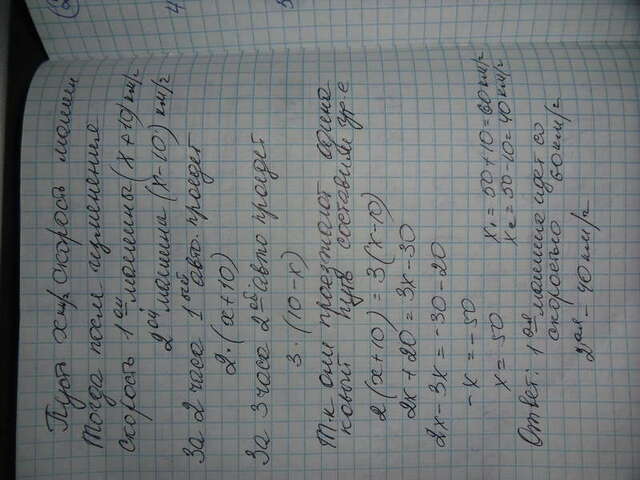 Пусть x км/г скорость машин
Тогда после изменения
скорость 1ой машины (x+10) км/г
2ой машина (x-10) км/г
За 2 часа 1ый авто. проедет
2·(x+10)
За 3 часа 2ой авто проедет
3·(10-x)
Т.к они проезжают одина
ковый путь составим ур-е
2(x+10) = 3(x-10)
2x + 20 = 3x - 30
2x - 3x = -30 - 20
-x = -50
x = 50
x₁ = 50+10 = 60 км/г
x₂ = 50-10 = 40 км/г
Ответ: 1ая машина идет со
скоростью 60 км/г
2ая - 40 км/г
4